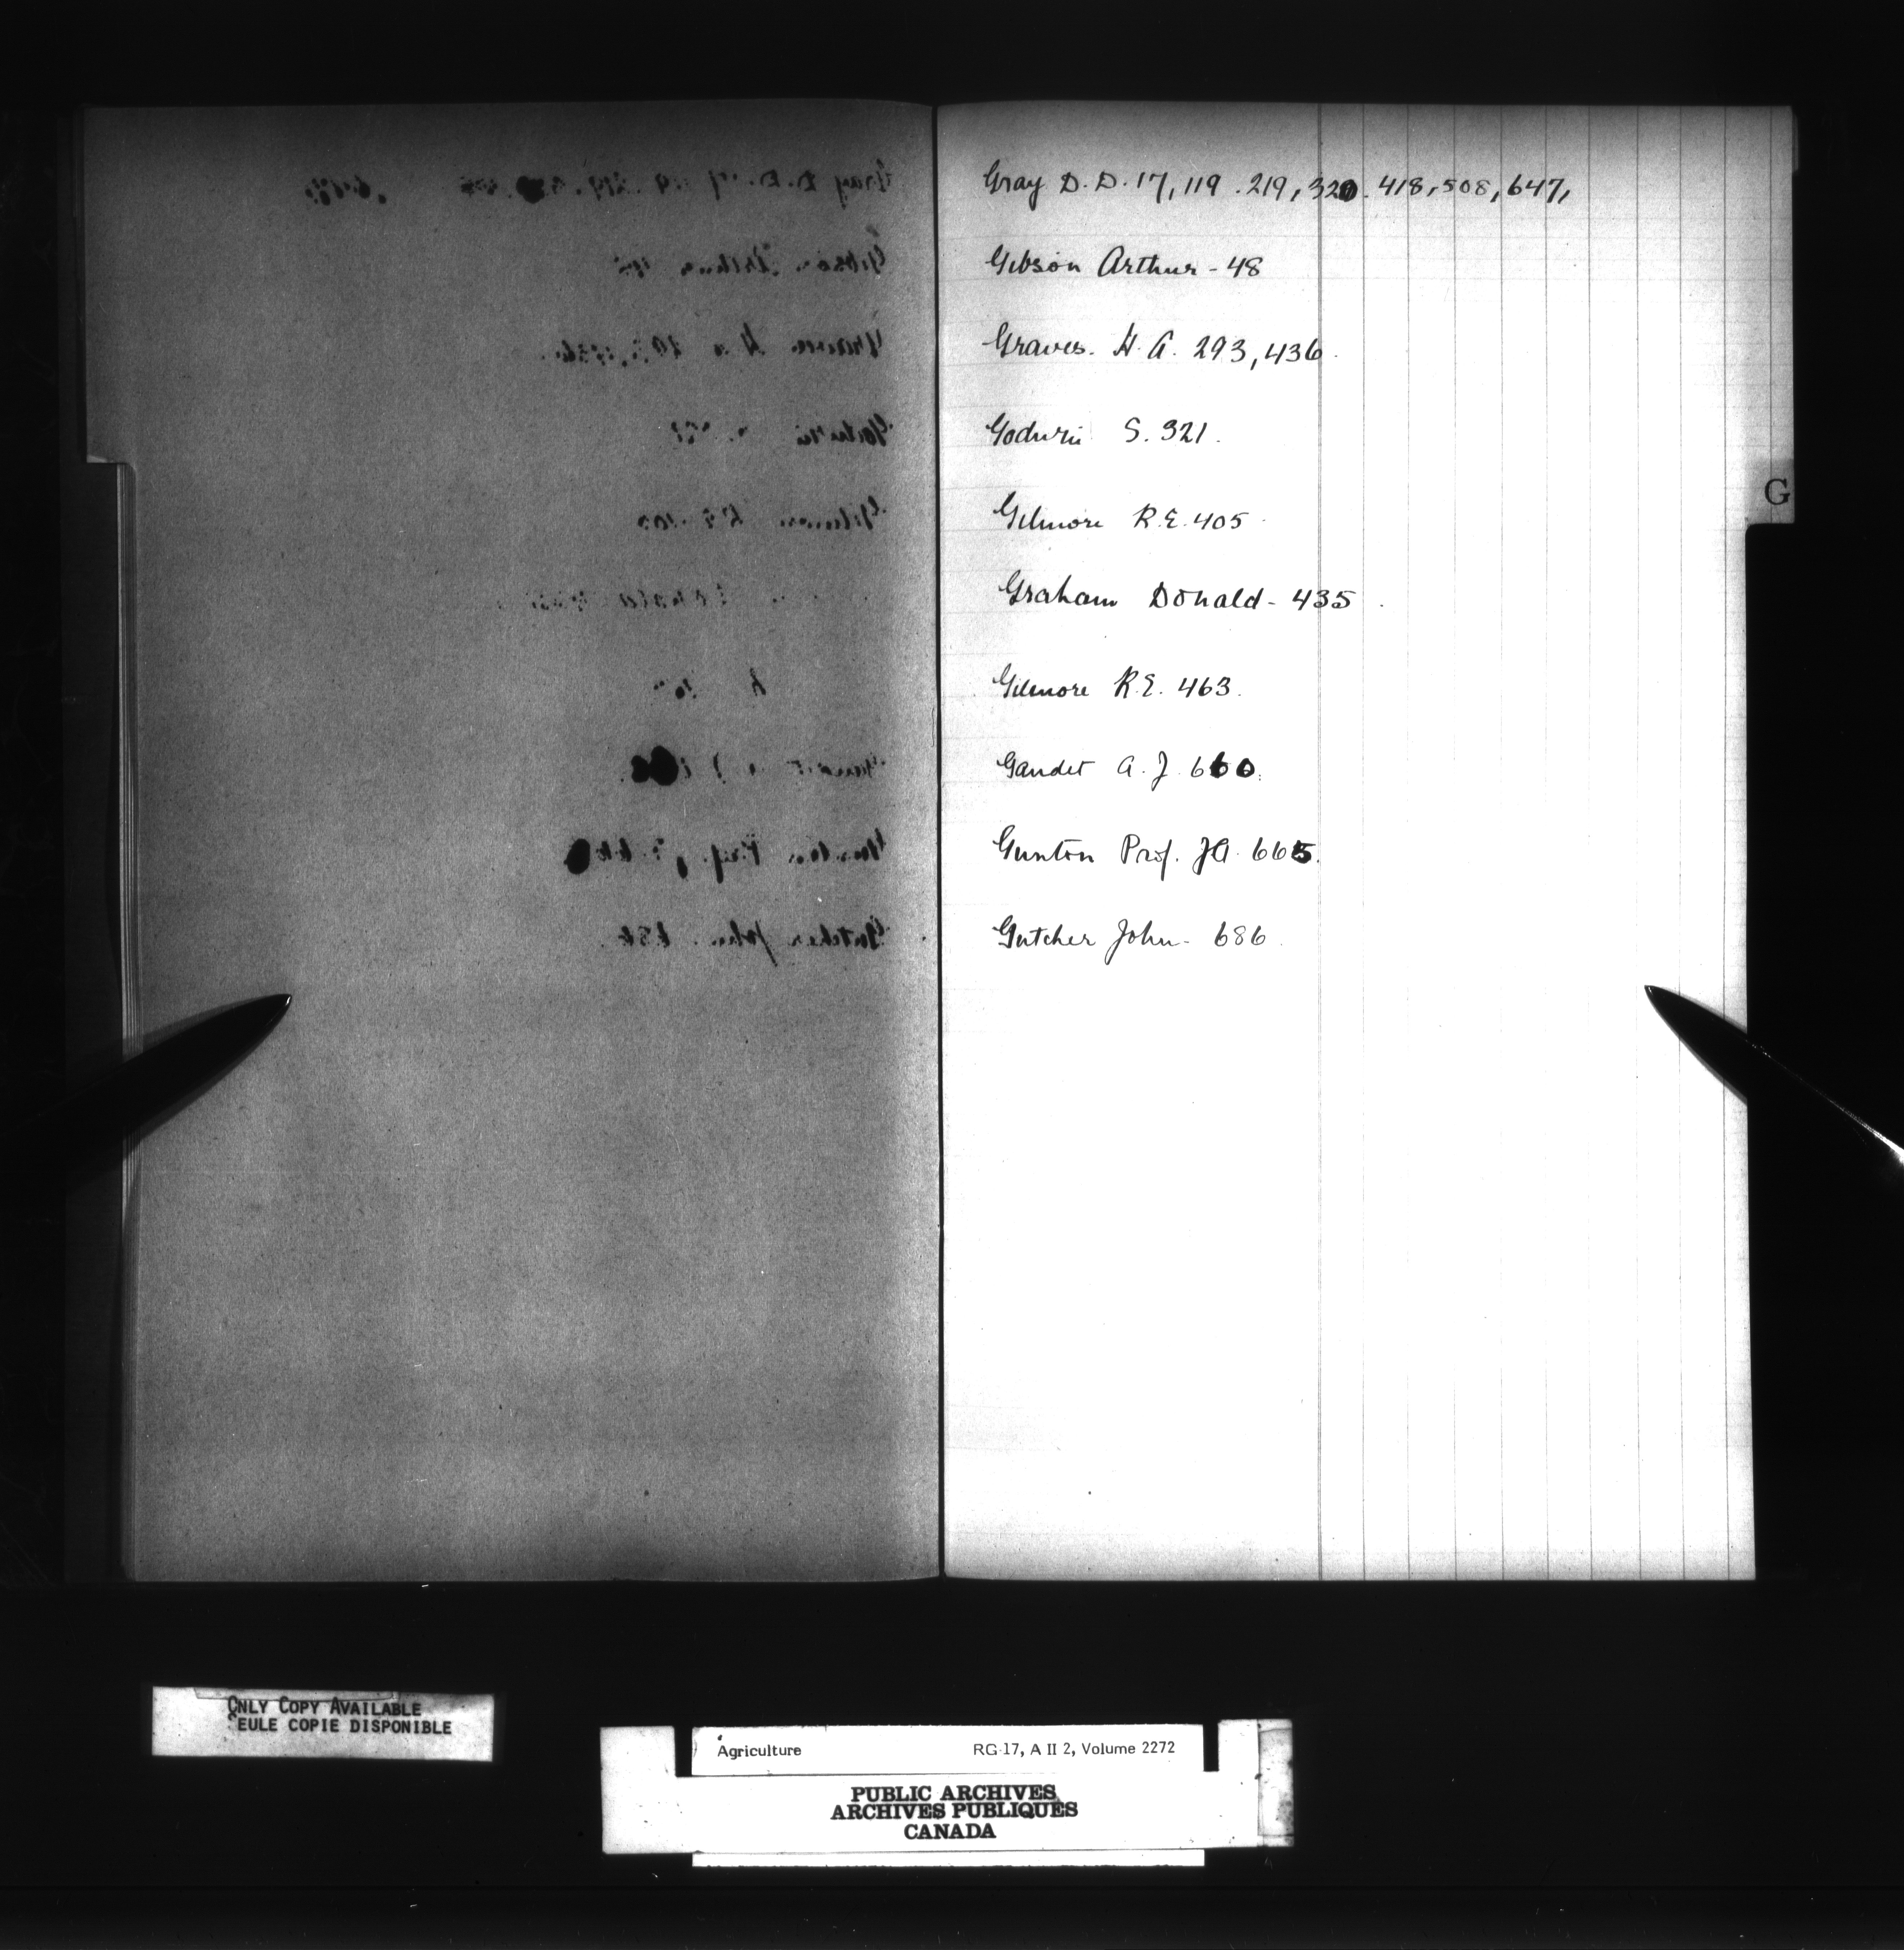 Gray D. D. 17, 119. 219, 320. 418, 508, 647,
Gibson Arthur - 48
Graves. H. A. 293, 436.
Godwin S. 321.
Gilmore R. E. 405
Graham Donald - 435.
G
Gilmore R. E. 463.
Gaudet A. J. 660.
Gunton Prof. JA. 665.
Gutcher John - 686.
ONLY COPY AVAILABLE
SEULE COPIE DISPONIBLE
Agriculture RG 17, A II 2, Volume 2272
PUBLIC ARCHIVES
ARCHIVES PUBLIQUES
CANADA